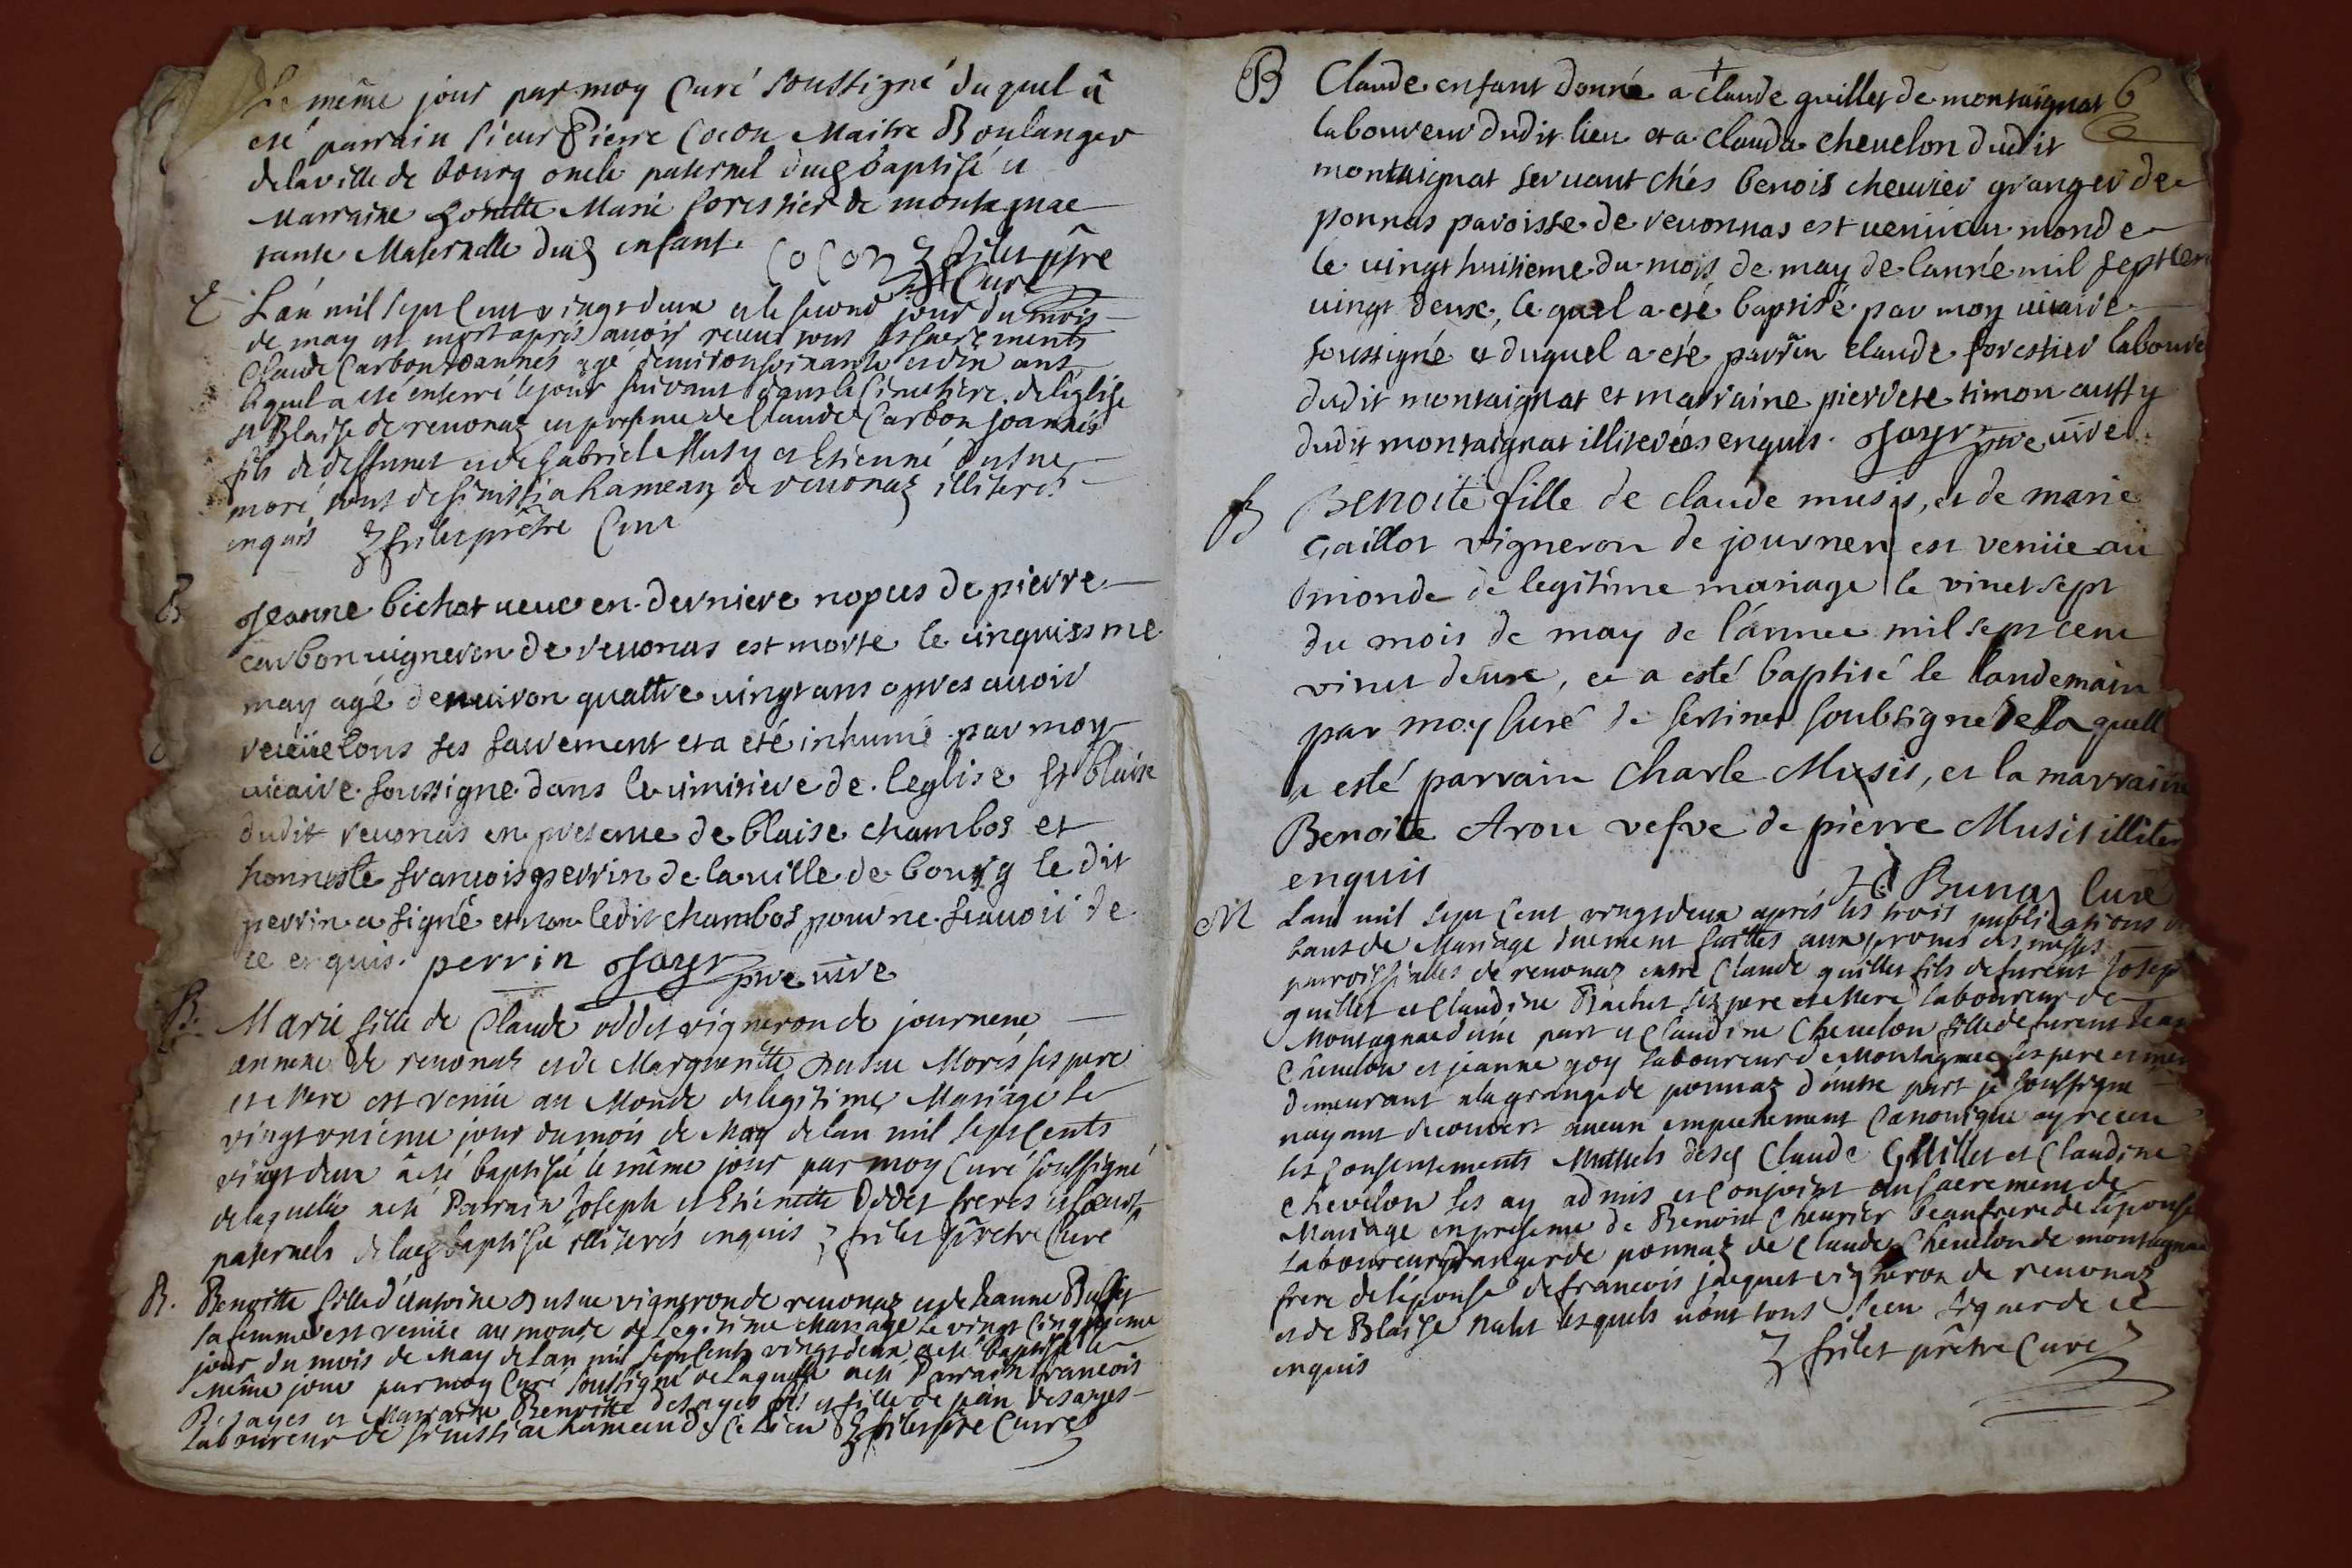 Le même jour par moy Curé soussigné duquel â
eté parrain sieur Pierre Cocon Maitre Boulanger
dela ville de bourg oncle paternel dud baptisé et
Marraine Marie forestier de montagnae
tante Maternelle dud enfant. COCON frilet ptre
Curé
E L'an mil sept Cent vingt deux et le second jour du mois
de may est mort aprés avoir receu tous les sacrements
Claude Carbon Joannés agé denviron soixante et dix ans
lequel a eté enterré le jour suivant dans le Cimetiere de l'eglise
st Blaise de reuonaz en presence de Claude Carbon Joannés
fils de deffunct et de Gabriel Musy et Etienne dutue
moré tous de sinissia hameau de reuonaz illiterés
enquis frilet prêtre Curé
B Jeanne bichat ueue en derniere nopces de pierre
carbon uigneron de reuonas est morte le cinquiesme
may agé denuiron quattre uingt ans apres auoir
receüe tous ses sacrement et a eté inhumé par moy
uicaire soussigne dans le cimitiere de leglise st blaise
dudit reuonas en presence de blaise chambos et
honneste francois perrin de la uille de bourg le dit
perrin a signé et non le dit chambos pour ne scauoir de
ce enquis. perrin Joayr pre uire
B. Marie fille de Claude oddet vigneron de journene
annexe de reuonaz et de Marguerite dutue Morés ses pere
et Mere est venüe au Monde de legitime Mariage le
vingt unieme jour du mois de May de lan mil sept Cents
vingt deux â eté baptisée le même jour par moy Curé soussigné
de laquelle a eté Parrain Joseph et Etienette Oddet freres et soeur
paternels de lad baptisée illiterés enquis frilet prêtre Curé
B. Benoitte fille d'Antoine dutue vigneron de reuonaz et de Jeanne Buffet
sa femme est venüe au monde de Legitime Mariage le vingt Cinquieme
jour du mois de May de lan mil sept Cents vingt deux a eté baptisée le
même jour par moy Curé soussigné de laquelle a eté Parrain francois
Desayes et Marraine Benoitte desayes fils et fille de jean Desayes
laboureur de sinissia hameau de Ce Lieu frilet ptre Curé
B Claude enfant donné a claude guillet de montaignat 6
laboureur dudit lieu et a clauda cheuelon dudit
montaignat seruant chés benois cheurier granger de
ponnas paroisse de reuonnas est ueniu au monde
le uingt huitieme du mois de may de lanrée mil sept cen
uingt deux, le quel a eté baptisé par moy uicaire
soussigné et duquel a eté parrin claude forestier laboure
dudit montaignat et marraine pierrete timon aussy
dudit montaignat illiterées enquis. Joayr pre uire
B Benoite fille de claude musis, et de marie
Gaillot vigneron de journen est venüe au
monde de legitime mariage le vinet sept
du mois de may de l'année mil sept cent
vinet deux, et a esté baptisé le landemain
par moy Curé de sertines soubsigné de laquell
a esté parrain charle Musis, et la marraine
Benoite Arou vefve de pierre Musis illiter
enquis Bunaz Curé
M Lan mil sept Cent vingt deux aprés les trois publications de
bans de Mariage duement faittes aux prones des messes
parroissialles de reuonaz entre Claude guillet fils de furent Josep
guillet et Claudine Rachet ses pere et Mere laboureur de
Montagnae d'une part et Claudine Cheuelon fille de furent Jean
Cheuelon et jeanne goy laboureur de Montagnae ses pere et mere
demeurant a la grange de ponnaz d'autre part je soussigné
nayant decouvert aucun empechement Canonique ay receu
les consentements Mutuels desd Claude Guillet et Claudine
Chevelon les ay admis et Conjoint au sacrement de
Mariage en presence de Benoist Cheurier beaufrere de l'épouse
laboureur granger de ponnaz de Claude Cheuelon de montagnae
frere de l'épouse de francois jacquet vigneron de reuonaz
et de Blaise nalet lesquels n'ont tous sceu signer de ce
enquis frilet prêtre Curé